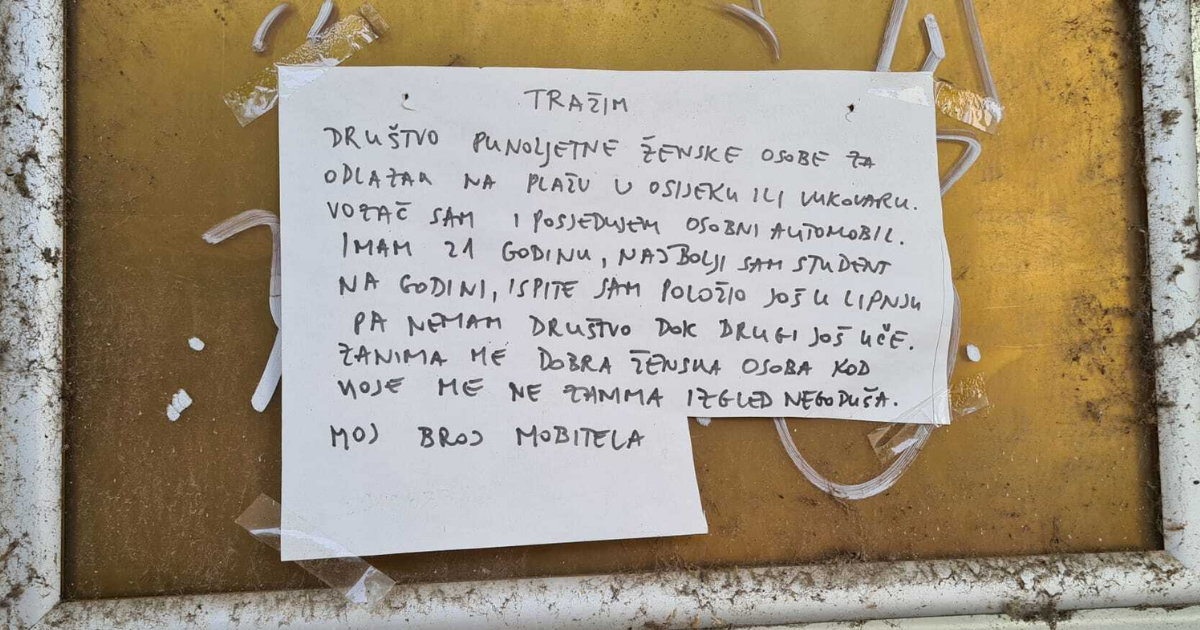 TRAŽIM
DRUŠTVO PUNOLJETNE ŽENSKE OSOBE ZA
ODLAZAK NA PLAŽU U OSIJEKU ILI VUKOVARU.
VOZAČ SAM I POSJEDUJEM OSOBNI AUTOMOBIL.
IMAM 21 GODINU, NAJBOLJI SAM STUDENT
NA GODINI, ISPITE SAM POLOŽIO JOŠ U LIPNJU
PA NEMAM DRUŠTVO DOK DRUGI JOŠ UČE.
ZANIMA ME DOBRA ŽENSKA OSOBA KOD
KOJE ME NE ZANIMA IZGLED NEGO DUŠA.
MOJ BROJ MOBITELA